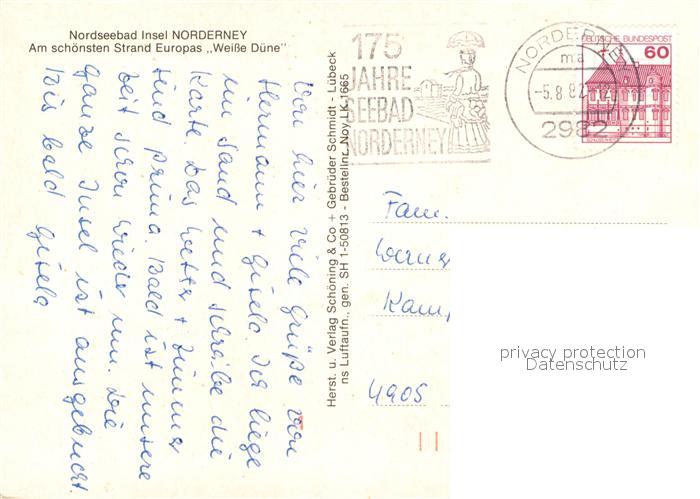 Nordseebad Insel NORDERNEY
Am schönsten Strand Europas ,,Weiße Düne"
175
JAHRE
SEEBAD
NORDERNEY
NORDERNEY
ma
-5.8.82
2982
DEUTSCHE BUNDESPOST
60
Von hier viele Grüße von
Hermann + Gisela. Ich liege
im Sand und schreibe die
Karte. Das Wetter + Zimmer
sind prima. Bald ist unsere
Zeit schon wieder um. Die
ganze Insel ist ausgebucht.
Bis bald Gisela
Herst. u. Verlag Schöning & Co + Gebrüder Schmidt - Lübeck
ns Luftaufn., gen. SH 1-50813 - Bestellnr. Noy LK 1665
Fam.
Werner
4905
privacy protection
Datenschutz